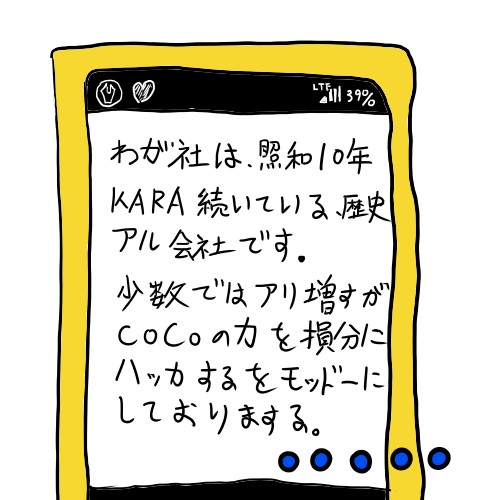 LTE 39%
わが社は、照和10年
KARA 続いている、歴史
アル会社です.
少数ではアリ増すが
COCoの力を損分に
ハッカするをモッドーに
しておりまする。